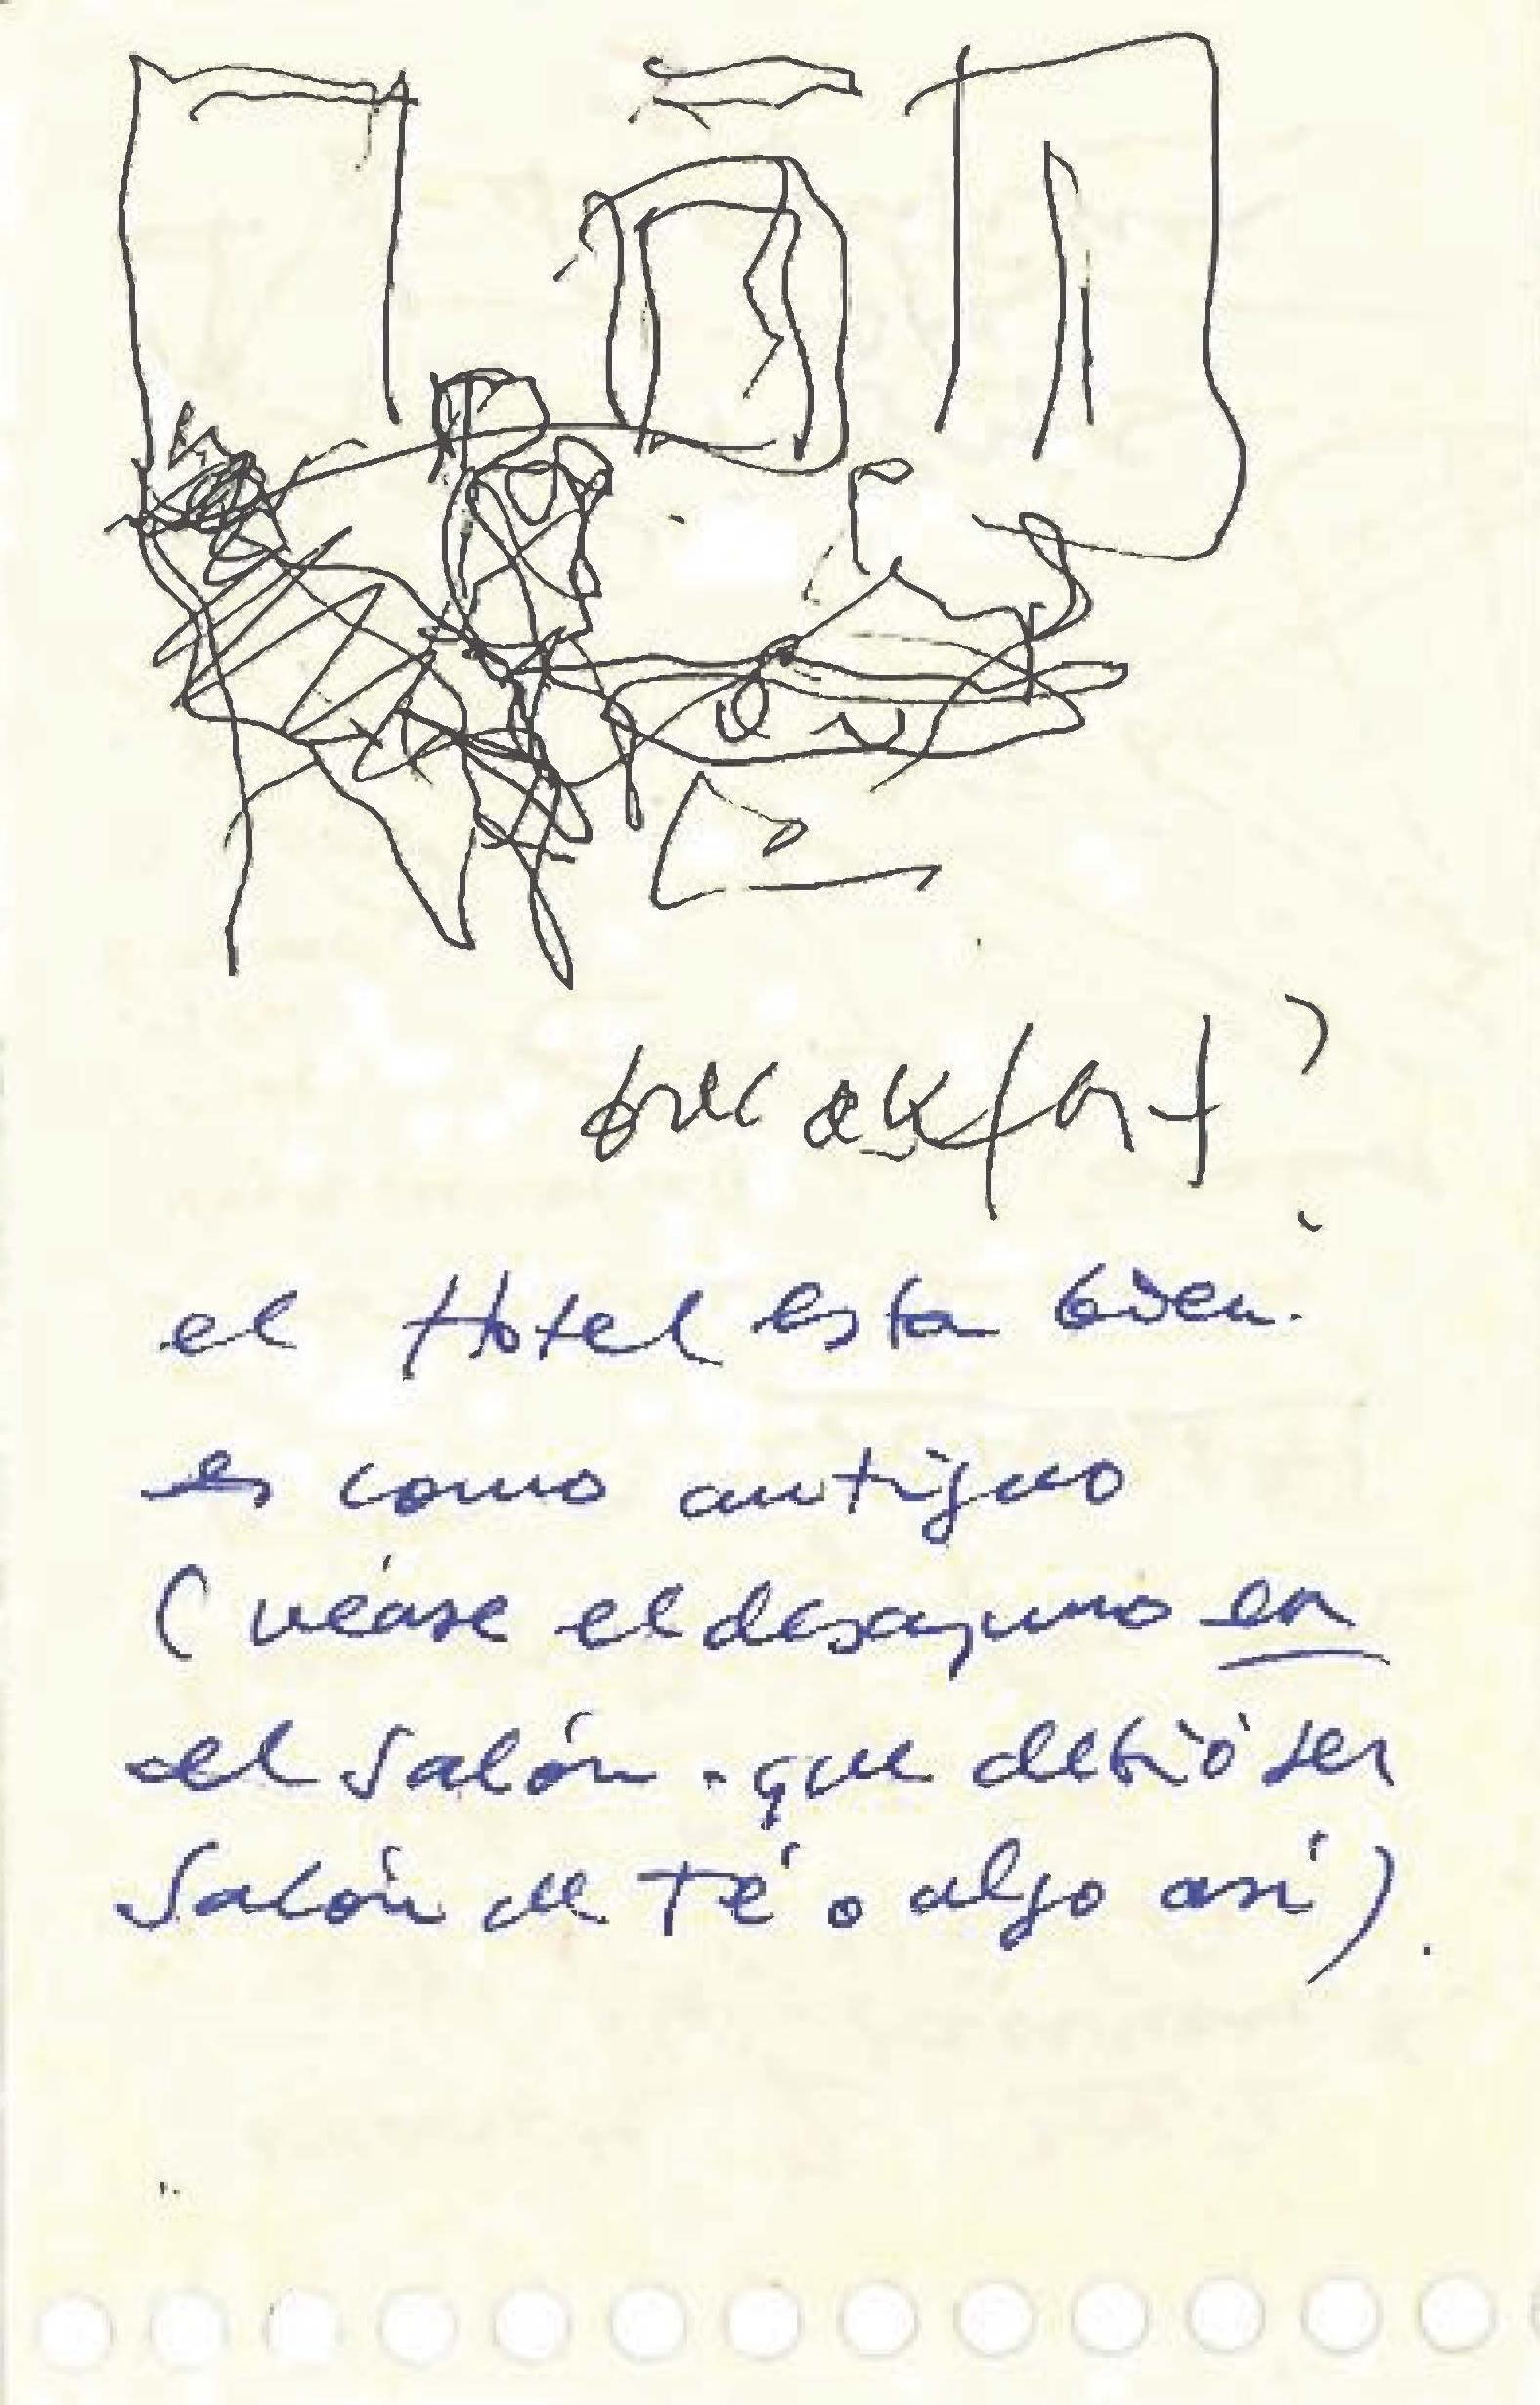 breakfast?
el Hotel esta bien.
es como antiguo
(véase el desayuno en
el salón - que debió ser
Salón de Té o algo así).